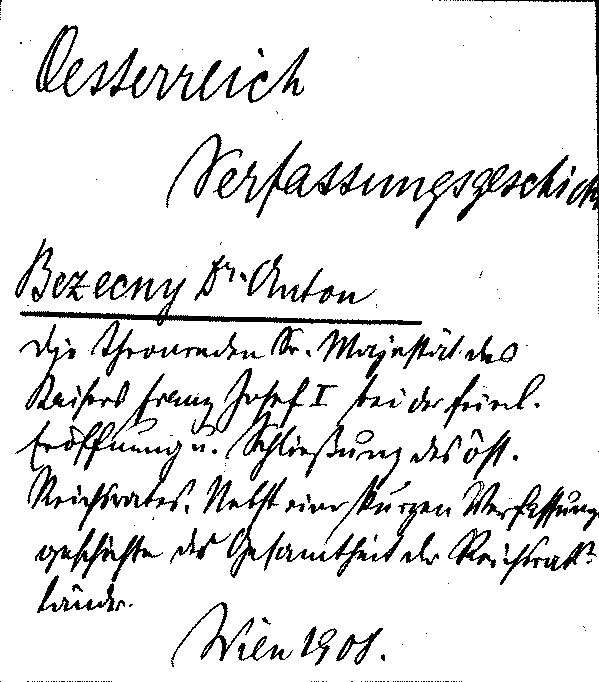 Oesterreich
Verfassungsgeschich
Bezecny Dr. Anton
Die Thronreden Sr. Majestät des
Kaisers Franz Josef I bei der feierl.
Eröffnung u. Schließung des öst.
Reichsrates. Nebst einer kurzen Verfassungs
geschichte der Gesamtheit der Reichsrats
länder.
Wien 1908.